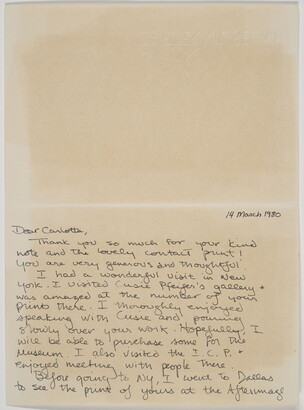 14 March 1980
Dear Carlotta,
Thank you so much for your kind
note and the lovely contact print!
You are very generous and thoughtful.
I had a wonderful visit in New
York. I visited Cusie Pfeifer's gallery +
was amazed at the number of your
prints there. I thoroughly enjoyed
speaking with Cusie and pouring
slowly over your work. Hopefully, I
will be able to purchase some for the
Museum. I also visited the I.C.P. +
enjoyed meeting with people there.
Before going to NY, I went to Dallas
to see the print of yours at the Afterimage